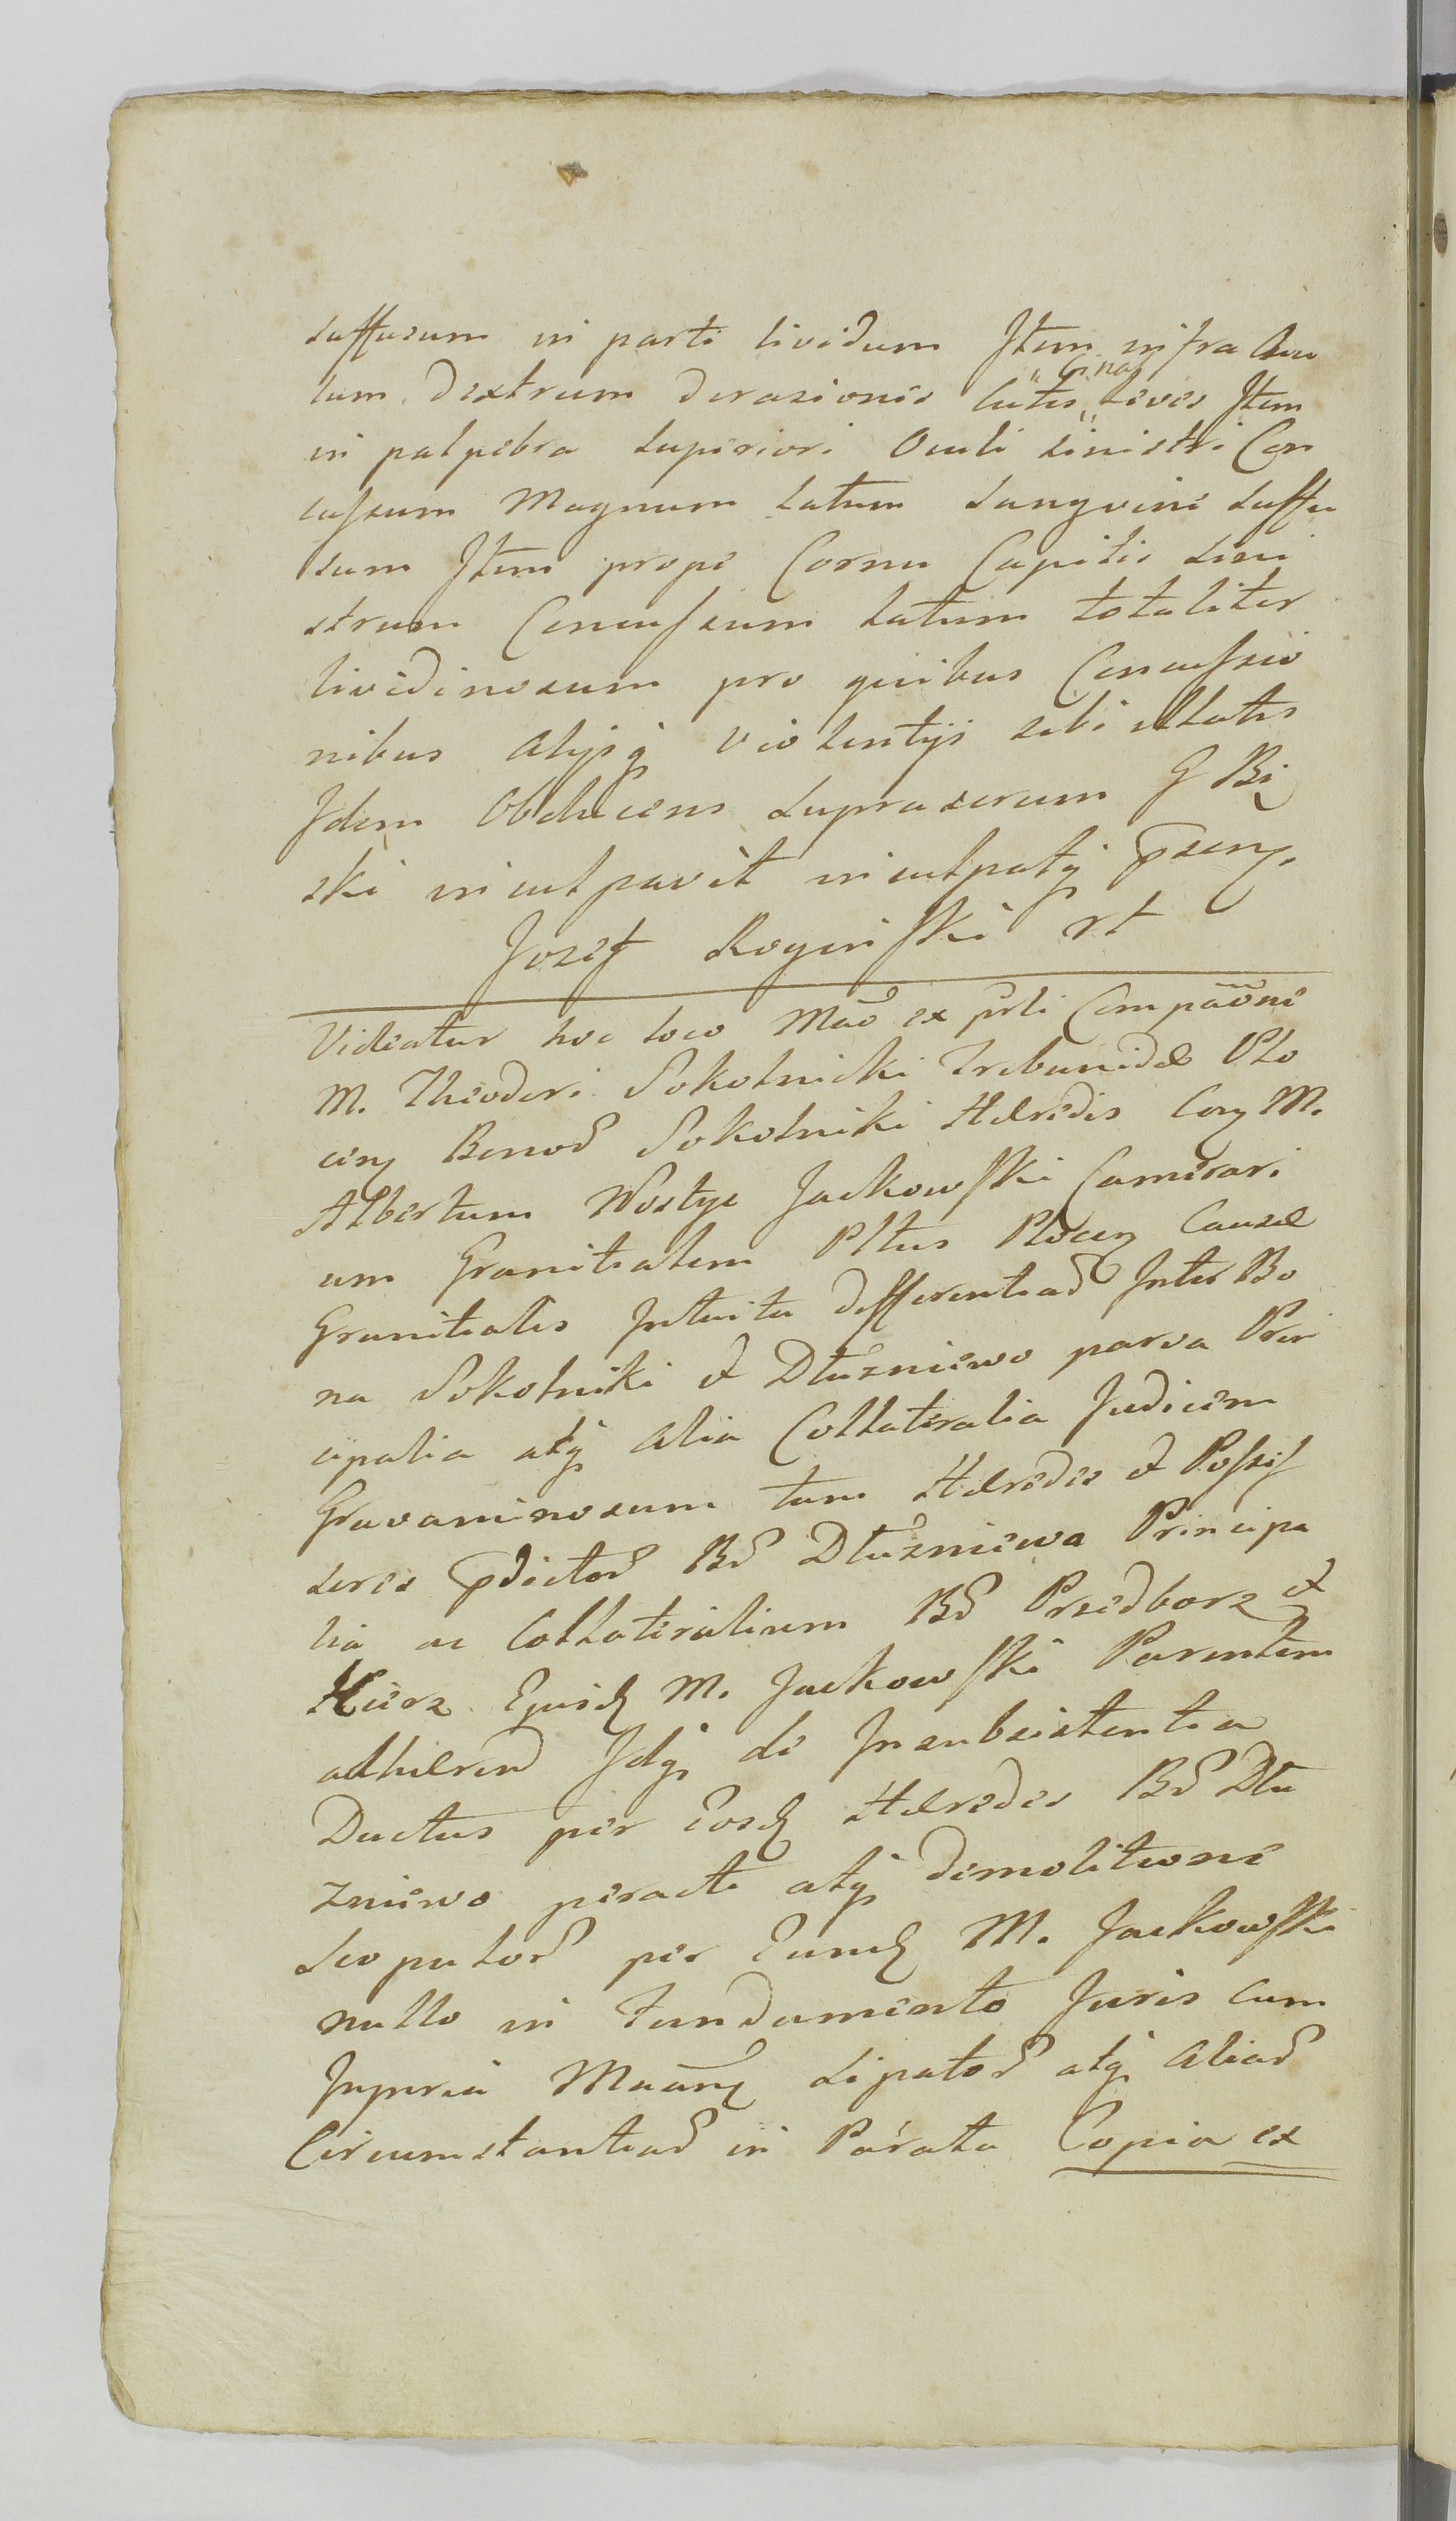 suffusum in parte lividum Item infra Ocu
lum dextrum derasiones Cutis binas leves Item
in palpebra superiori Oculi sinistri Con
cussum Magnum latum sangvine suffu
sum Item prope Cornu Capitis sini
strum Concussum latum totaliter
lividinosum pro quibus Concussio
nibus alijsq violentijs sibi illatis
Idem Obducens supra serum G Bi
ski inculpavit inculpatq psenz.
Jozef Roginski rt
Videatur hoc loco ex Comparōne
M. Theodori Sokolnicki Tribunidæ Plo
cen Bonor Sokolniki Hæredis Con M.
Albertum Nostyc Jackowski Camerari
um Granitialem Pltus Plocen Causæ
Granitialis Intuitu differentiar Inter Bo
na Sokolniki et Dłuzniewo parva Prin
cipalia atq alia Collateralia Judicem
Gravaminosum tum Hæredes et Posses
sores pdictor Br Dłuzniewa Principa
lia ac Collateralium Br Przedborz et
Kierz Ejusd M. Jackowski Parentem
adhæren Idq de Insubsistentia
Ductus per Eosd Hæredes Br Dłu
zniewo peracti atq demolitione
Scopulor per Eund M. Jackowski
nullo in Fundamento Juris cum
Injuria sipator atq Aliar
Circumstantiar in Parata Copia ex